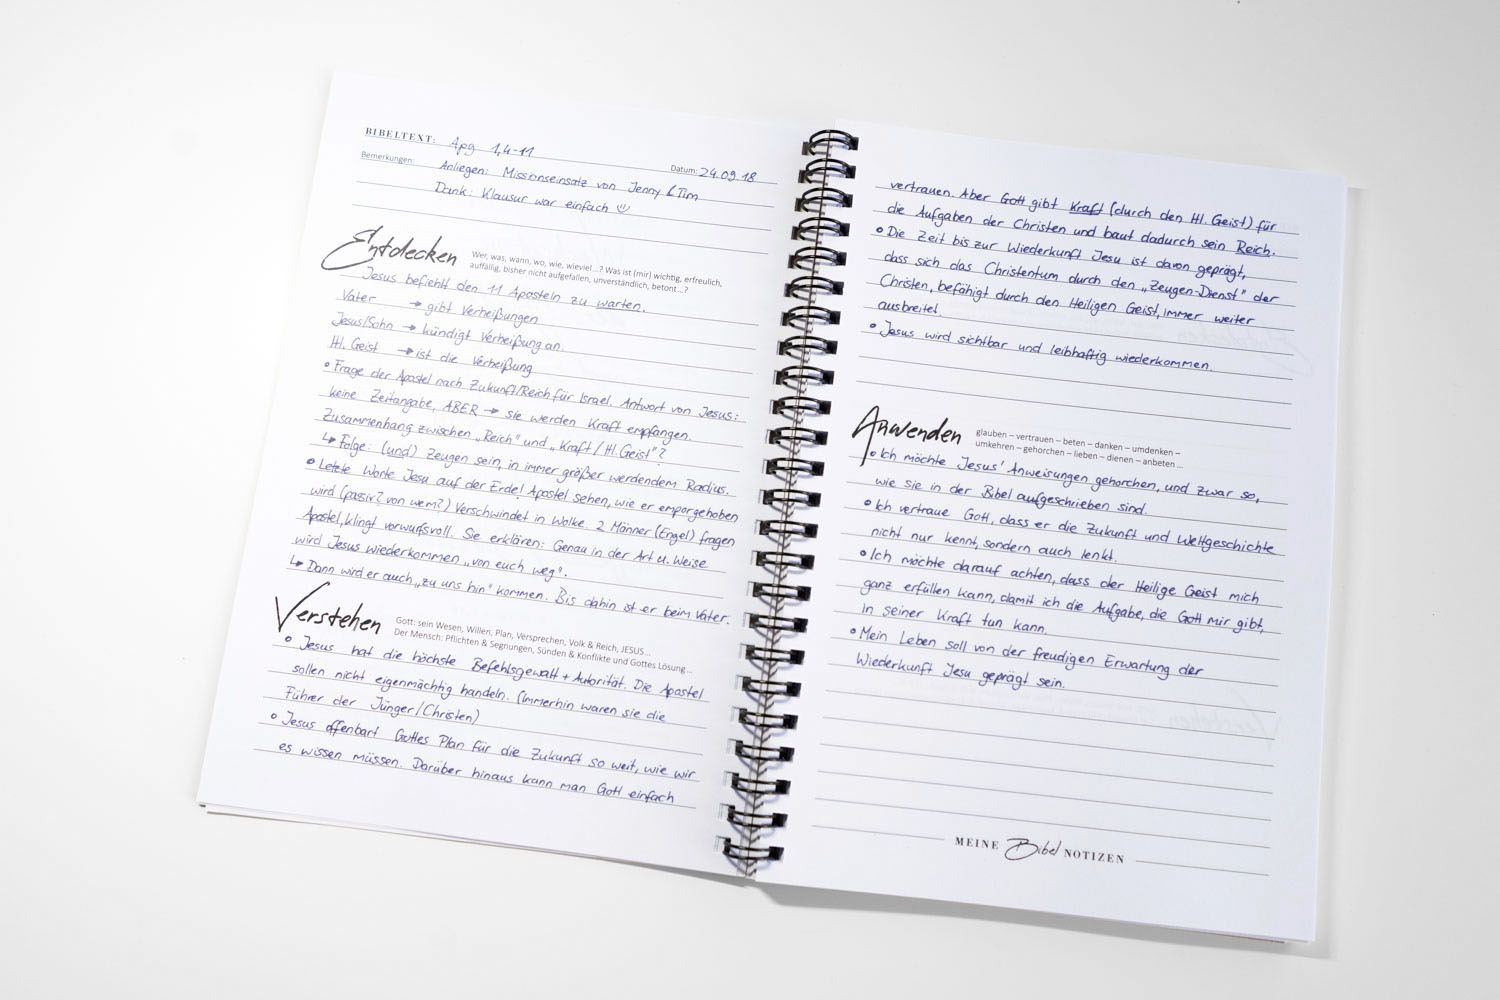 BIBELTEXT: Apg 1,4-11
Bemerkungen: Datum: 24.09.18
Anliegen: Missionseinsatz von Jenny & Tim
Dank: Klausur war einfach ☺
Entdecken Wer, was, wann, wo, wie, wieviel...? Was ist (mir) wichtig, erfreulich,
auffällig, bisher nicht aufgefallen, unverständlich, betont...?
Jesus befiehlt den 11 Aposteln zu warten.
Vater → gibt Verheißungen
Jesus/Sohn → kündigt Verheißung an.
Hl. Geist → ist die Verheißung
• Frage der Apostel nach Zukunft/Reich für Israel. Antwort von Jesus:
keine Zeitangabe, ABER → sie werden Kraft empfangen.
Zusammenhang zwischen „Reich" und „Kraft / Hl. Geist"?
↳ Folge: (und) Zeugen sein, in immer größer werdendem Radius.
• Letzte Worte Jesu auf der Erde! Apostel sehen, wie er emporgehoben
wird (passiv? von wem?) Verschwindet in Wolke. 2 Männer (Engel) fragen
Apostel, klingt vorwurfsvoll. Sie erklären: Genau in der Art u. Weise
wird Jesus wiederkommen „von euch weg".
↳ Dann wird er auch „zu uns hin" kommen. Bis dahin ist er beim Vater.
Verstehen Gott: sein Wesen, Willen, Plan, Versprechen, Volk & Reich, JESUS...
Der Mensch: Pflichten & Segnungen, Sünden & Konflikte und Gottes Lösung...
• Jesus hat die höchste Befehlsgewalt + Autorität. Die Apostel
sollen nicht eigenmächtig handeln. (Immerhin waren sie die
Führer der Jünger/Christen)
• Jesus offenbart Gottes Plan für die Zukunft so weit, wie wir
es wissen müssen. Darüber hinaus kann man Gott einfach
vertrauen. Aber Gott gibt Kraft (durch den Hl. Geist) für
die Aufgaben der Christen und baut dadurch sein Reich.
• Die Zeit bis zur Wiederkunft Jesu ist davon geprägt,
dass sich das Christentum durch den „Zeugen-Dienst" der
Christen, befähigt durch den Heiligen Geist, immer weiter
ausbreitet.
• Jesus wird sichtbar und leibhaftig wiederkommen.
Anwenden glauben – vertrauen – beten – danken – umdenken –
umkehren – gehorchen – lieben – dienen – anbeten ...
• Ich möchte Jesus' Anweisungen gehorchen, und zwar so,
wie sie in der Bibel aufgeschrieben sind.
• Ich vertraue Gott, dass er die Zukunft und Weltgeschichte
nicht nur kennt, sondern auch lenkt.
• Ich möchte darauf achten, dass der Heilige Geist mich
ganz erfüllen kann, damit ich die Aufgabe, die Gott mir gibt,
in seiner Kraft tun kann.
• Mein Leben soll von der freudigen Erwartung der
Wiederkunft Jesu geprägt sein.
MEINE Bibel NOTIZEN